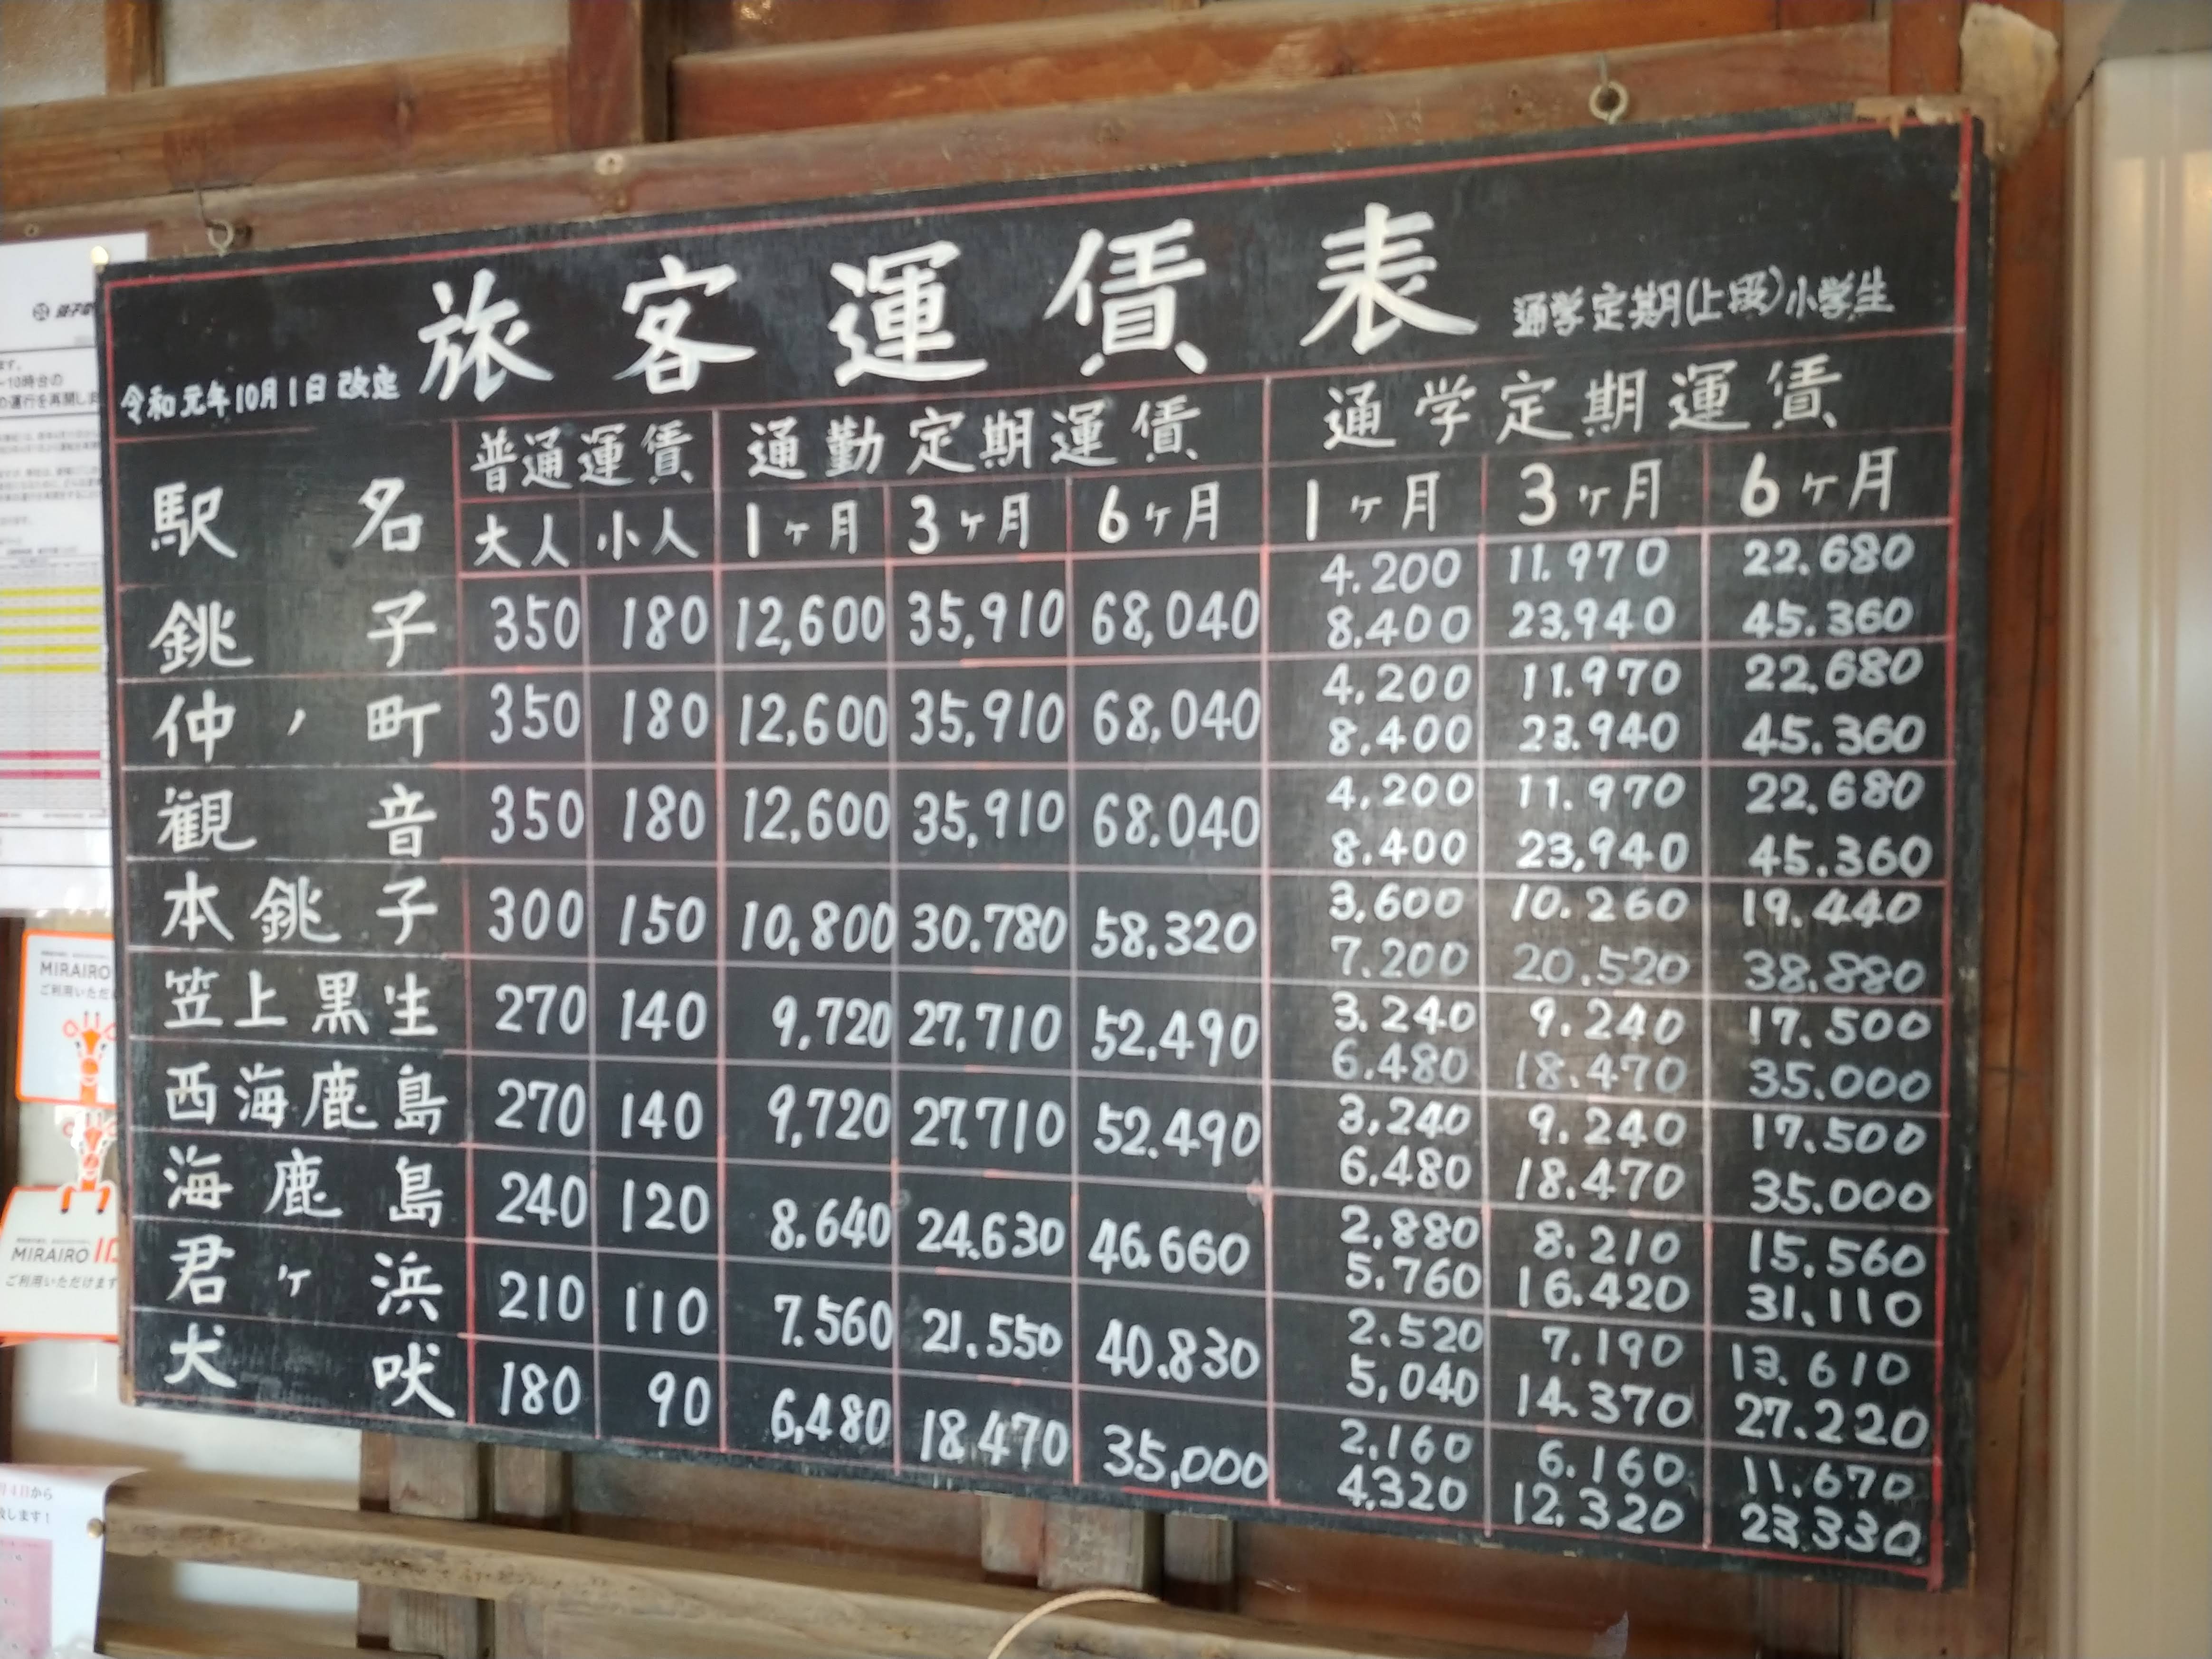 旅客運賃表
通学定期(上段)小学生
令和元年10月1日改定
駅名 普通運賃 通勤定期運賃 通学定期運賃
大人 小人 1ヶ月 3ヶ月 6ヶ月 1ヶ月 3ヶ月 6ヶ月
4.200 11.970 22.680
銚子 350 180 12,600 35,910 68,040 8,400 23,940 45.360
4,200 11.970 22.680
仲ノ町 350 180 12,600 35,910 68,040 8,400 23.940 45.360
4,200 11.970 22.680
観音 350 180 12,600 35,910 68,040 8.400 23,940 45.360
3,600 10.260 19.440
本銚子 300 150 10,800 30.780 58,320 7.200 20.520 38.880
3.240 9.240 17.500
笠上黒生 270 140 9,720 27,710 52,490 6.480 18.470 35.000
3,240 9.240 17.500
西海鹿島 270 140 9,720 27,710 52.490 6.480 18.470 35.000
2,880 8.210 15.560
海鹿島 240 120 8,640 24.630 46.660 5.760 16.420 31.110
2.520 7.190 13.610
君ヶ浜 210 110 7.560 21.550 40.830 5,040 14.370 27.220
2,160 6.160 11.670
犬吠 180 90 6,480 18.470 35,000 4,320 12.320 23.330
10時台の
の運行を再開しま
MIRAIRO
ご利用いただけ
MIRAIRO ID
ご利用いただけます
月4日から
致します!